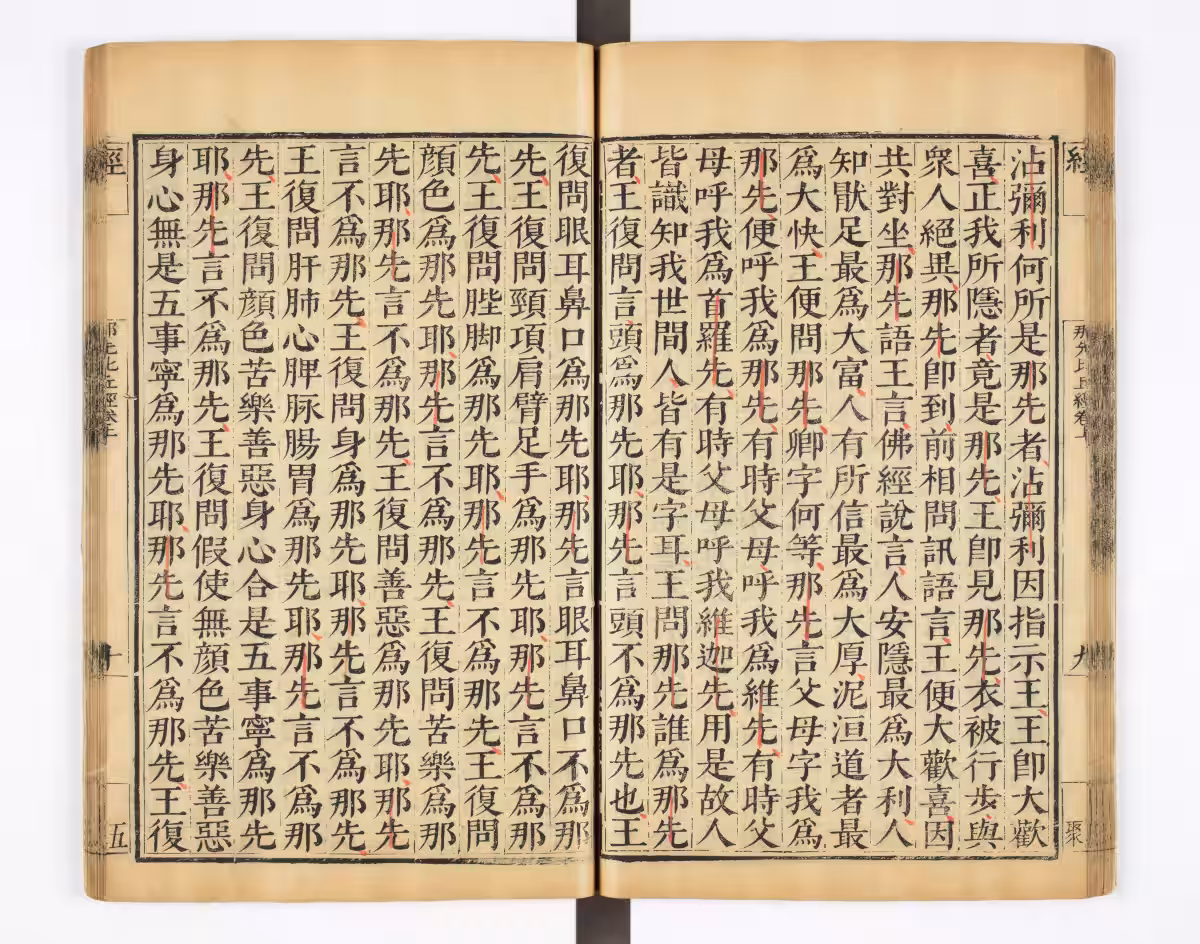 沾彌利何所是那先者沾彌利因指示王王即大歡
喜正我所隱者竟是那先王即見那先衣被行步與
衆人絕異那先即到前相問訊語言王便大歡喜因
共對坐那先語王言佛經說言人安隱最爲大利人
知猒足最爲大富人有所信最爲大厚泥洹道者最
爲大快王便問那先卿字何等那先言父母字我爲
那先便呼我爲那先有時父母呼我爲維先有時父
母呼我爲首羅先有時父母呼我維迦先用是故人
皆識知我世間人皆有是字耳王問那先誰爲那先
者王復問言頭爲那先耶那先言頭不爲那先也王
復問眼耳鼻口爲那先耶那先言眼耳鼻口不爲那
先王復問頸項肩臂足手爲那先耶那先言不爲那
先王復問䏶脚爲那先耶那先言不爲那先王復問
顔色爲那先耶那先言不爲那先王復問苦樂爲那
先耶那先言不爲那先王復問善惡爲那先耶那先
言不爲那先王復問身爲那先耶那先言不爲那先
王復問肝肺心脾脉腸胃爲那先耶那先言不爲那
先王復問顔色苦樂善惡身心合是五事寧爲那先
耶那先言不爲那先王復問假使無顔色苦樂善惡
身心無是五事寧爲那先耶那先言不爲那先王復
經
那先比丘經卷上
九
聚
五